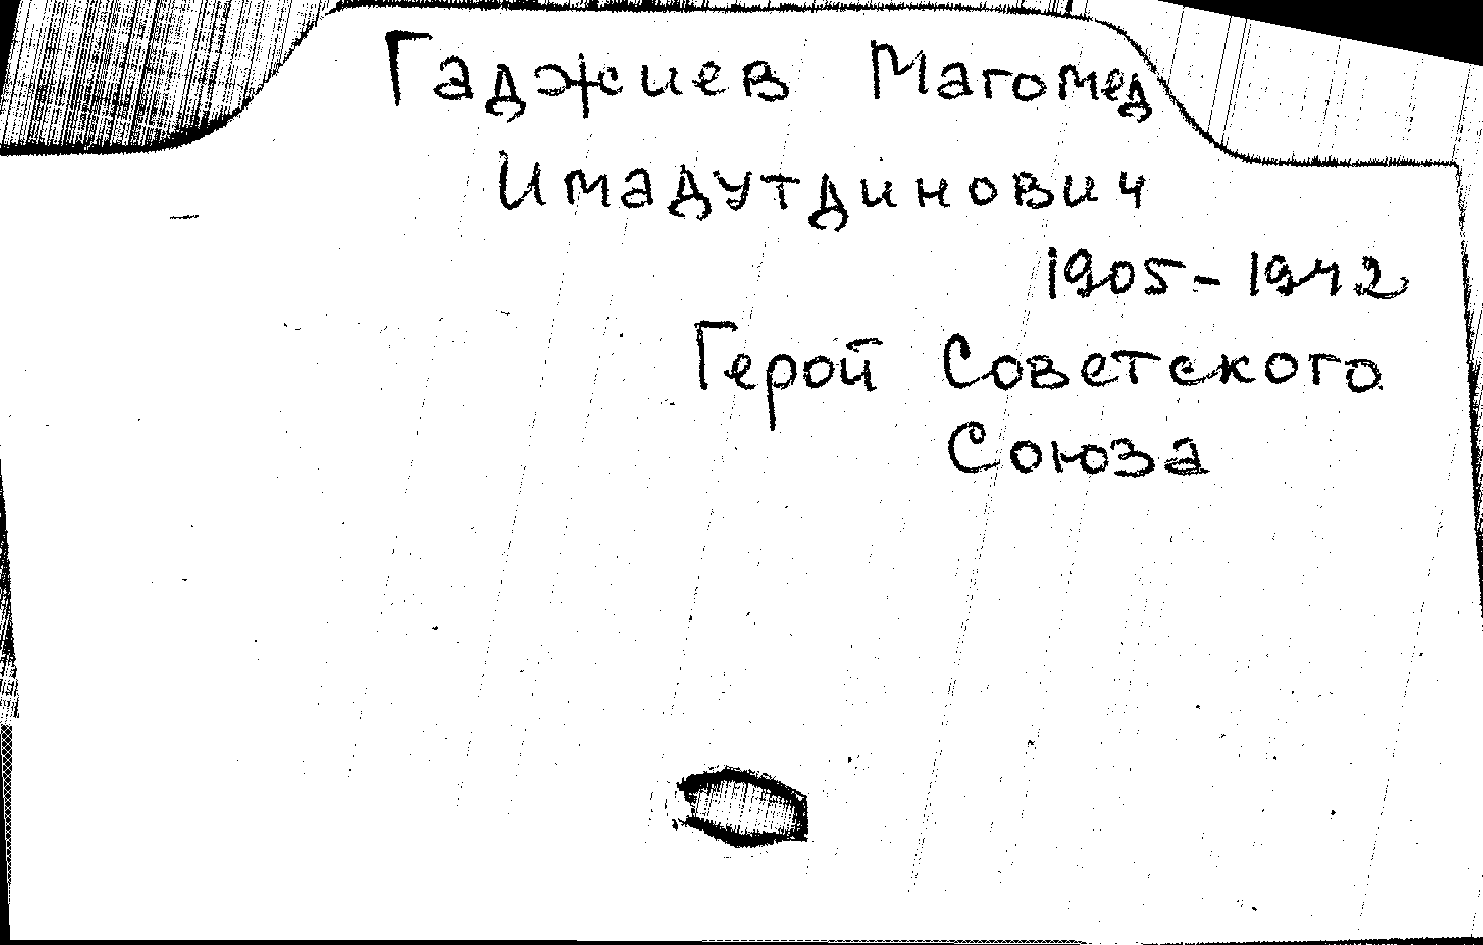 Гаджиев Магомед
Имадутдинович
1905-1942
Герой Советского
Союза